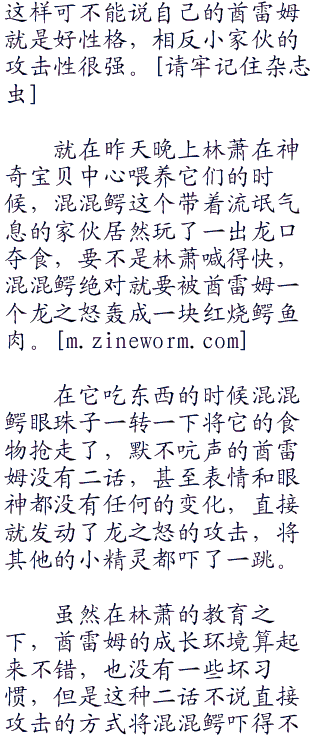 这样可不能说自己的酋雷姆
就是好性格，相反小家伙的
攻击性很强。[请牢记住杂志
虫]
就在昨天晚上林萧在神
奇宝贝中心喂养它们的时
候，混混鳄这个带着流氓气
息的家伙居然玩了一出龙口
夺食，要不是林萧喊得快，
混混鳄绝对就要被酋雷姆一
个龙之怒轰成一块红烧鳄鱼
肉。[m.zineworm.com]
在它吃东西的时候混混
鳄眼珠子一转一下将它的食
物抢走了，默不吭声的酋雷
姆没有二话，甚至表情和眼
神都没有任何的变化，直接
就发动了龙之怒的攻击，将
其他的小精灵都吓了一跳。
虽然在林萧的教育之
下，酋雷姆的成长环境算起
来不错，也没有一些坏习
惯，但是这种二话不说直接
攻击的方式将混混鳄吓得不